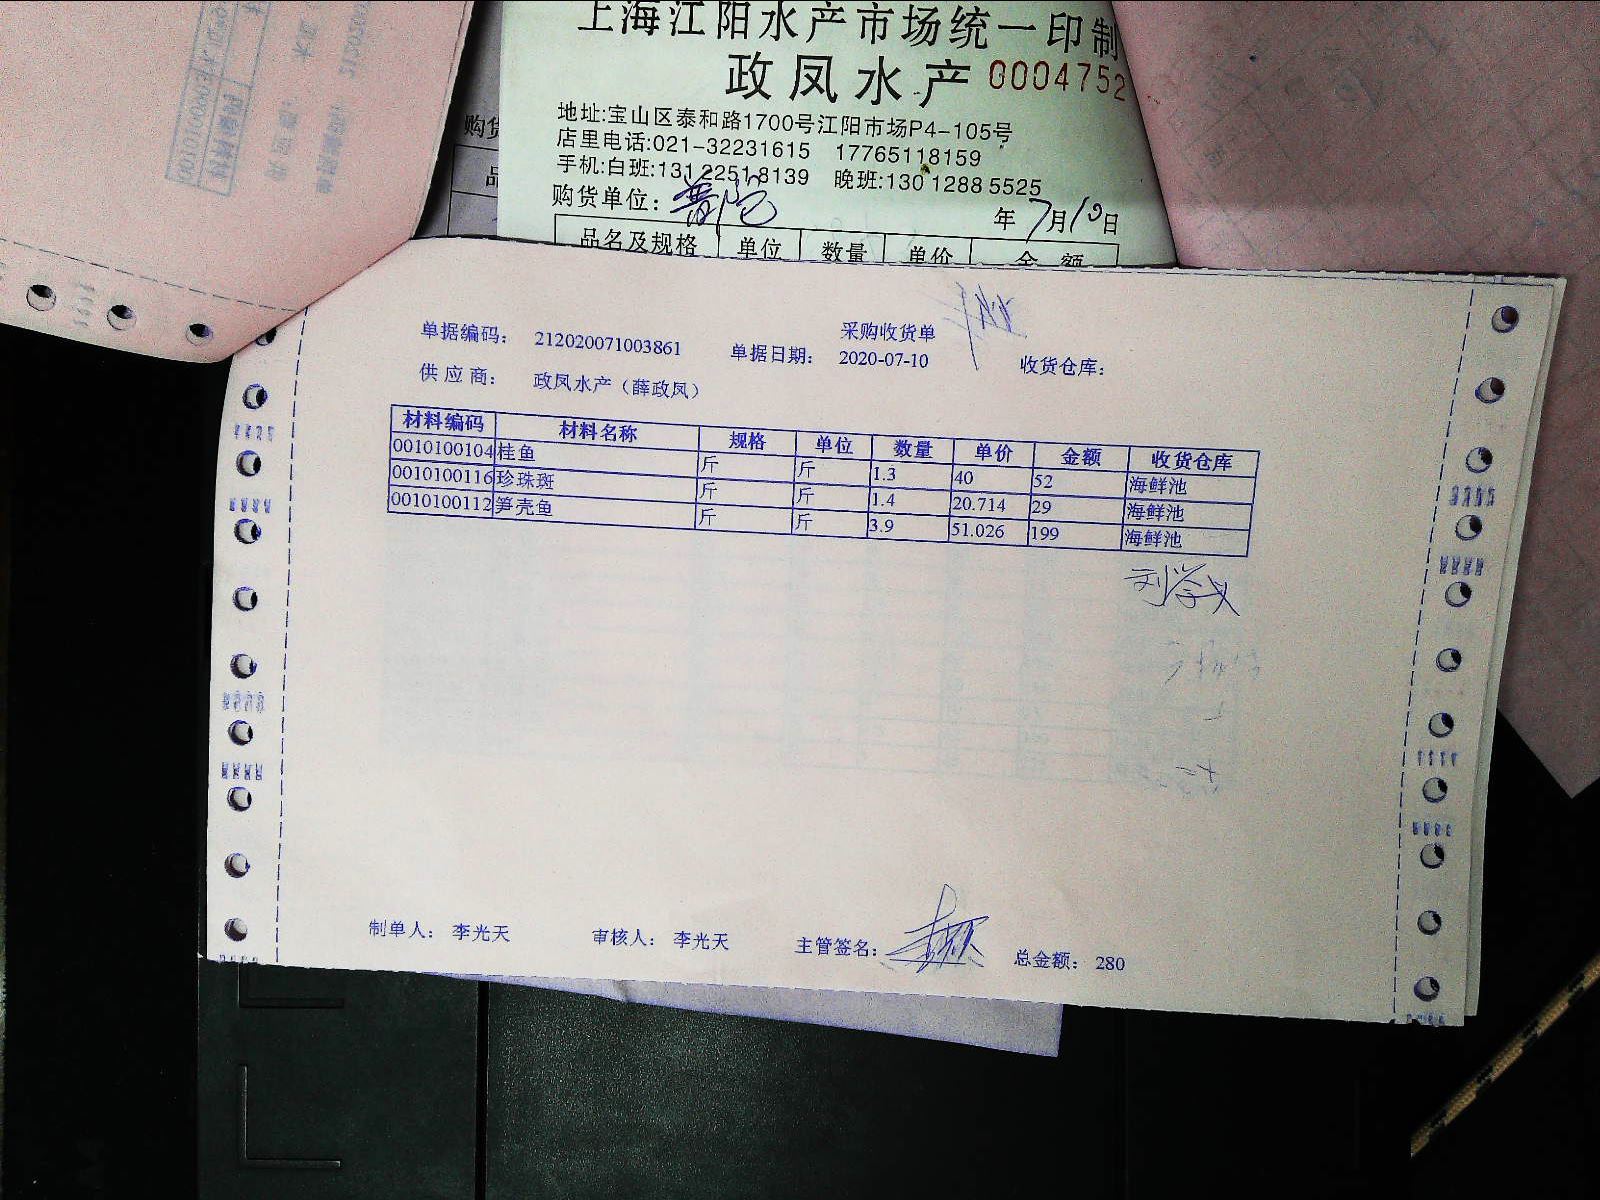 上海江阳水产市场统一印制
政凤水产 0004752
地址:宝山区泰和路1700号江阳市场P4-105号
店里电话:021-32231615 17765118159
手机:白班:131 2251 8139 晚班:130 1288 5525
购货单位:
年7月10日
品名及规格 单位 数量 单价 金额
购货
品
采购收货单
单据编码: 212020071003861 单据日期: 2020-07-10 收货仓库:
供应商: 政凤水产（薛政凤）
材料编码 材料名称 规格 单位 数量 单价 金额 收货仓库
0010100104 桂鱼 斤 斤 1.3 40 52 海鲜池
0010100116 珍珠斑 斤 斤 1.4 20.714 29 海鲜池
0010100112 笋壳鱼 斤 斤 3.9 51.026 199 海鲜池
刘学义
制单人: 李光天 审核人: 李光天 主管签名: 总金额: 280